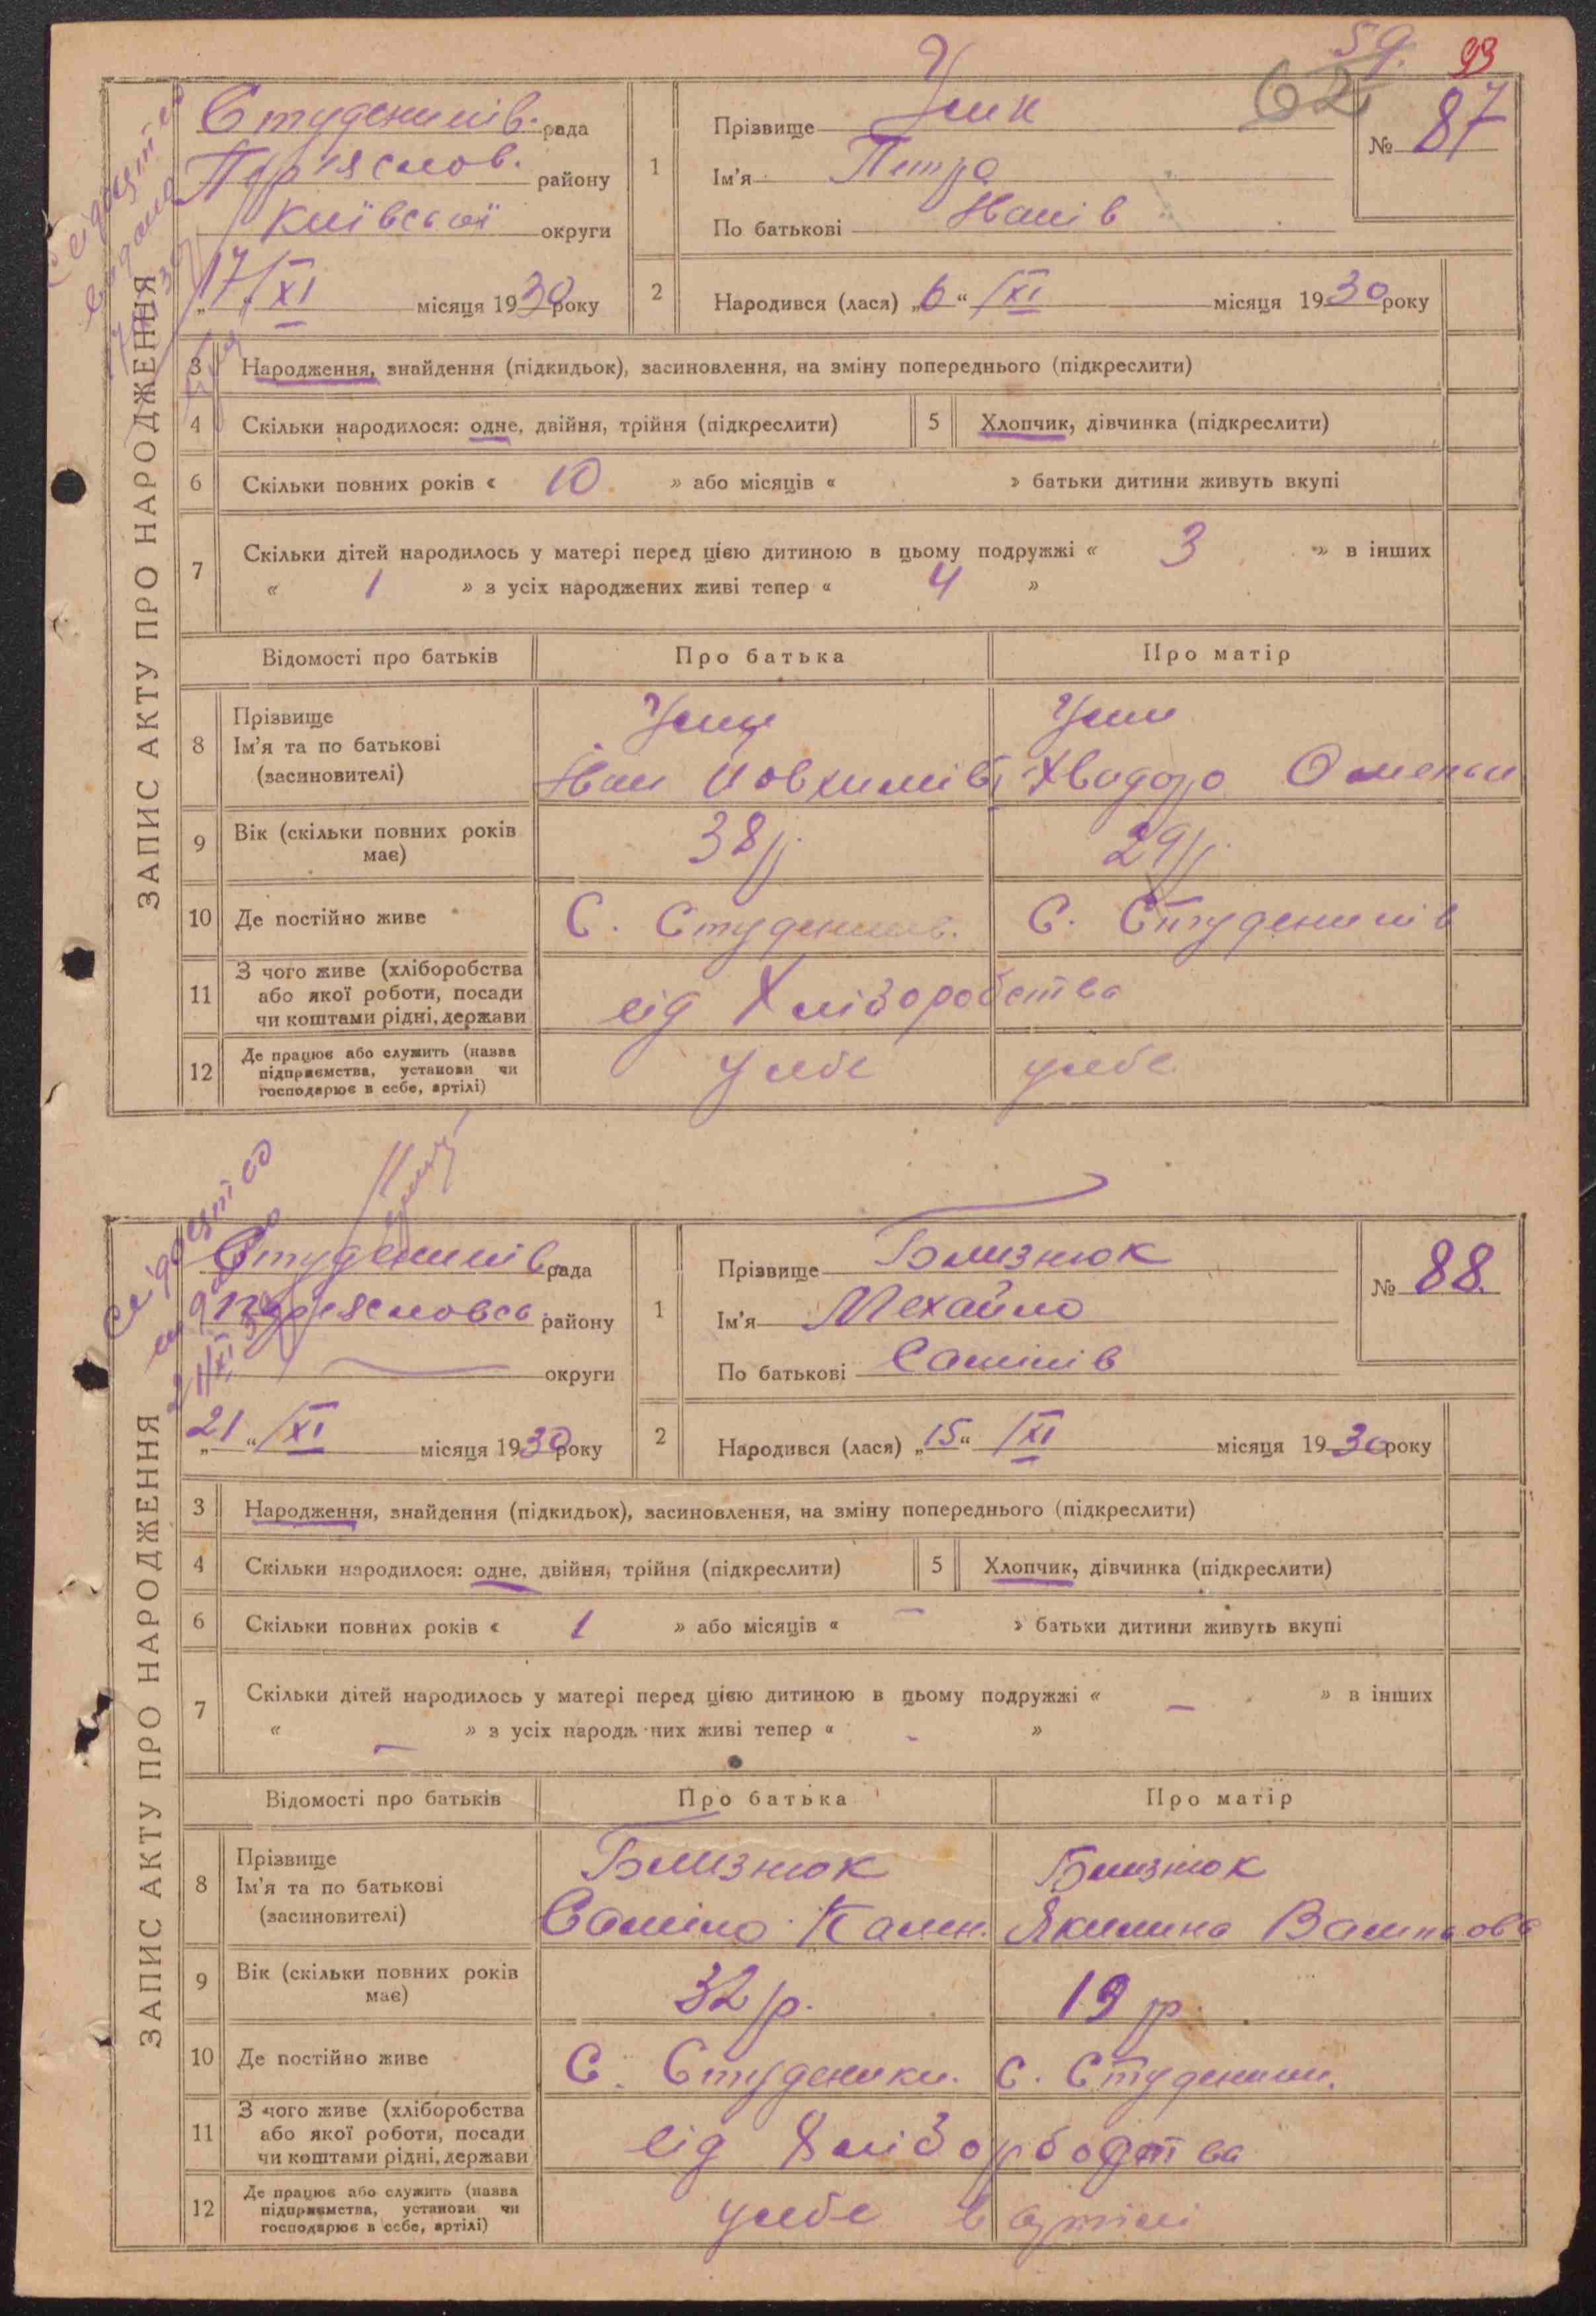 59. 93
62
ЗАПИС АКТУ ПРО НАРОДЖЕННЯ
Студеників. рада
Пер'яслов. району
Київської округи
„17“ /XI місяця 1930 року
1
Прізвище
Ім'я Петро
По батькові Іванів
№ 87
2 Народився (лася) „6“ /XI місяця 1930 року
3 Народження, знайдення (підкидьок), засиновлення, на зміну попереднього (підкреслити)
4 Скільки народилося: одне, двійня, трійня (підкреслити) 5 Хлопчик, дівчинка (підкреслити)
6 Скільки повних років « 10 » або місяців « » батьки дитини живуть вкупі
7 Скільки дітей народилось у матері перед цією дитиною в цьому подружжі « 3 » в інших
« 1 » з усіх народжених живі тепер « 4 »
Відомості про батьків Про батька Про матір
8 Прізвище
Ім'я та по батькові
(засиновителі)
Іван Йовхимів Хводора
9 Вік (скільки повних років має) 38 р. 29 р.
10 Де постійно живе С. Студеників. С. Студеників
11 З чого живе (хліборобства або якої роботи, посади чи коштами рідні, держави
від Хліборобства
12 Де працює або служить (назва підприємства, установи чи господарює в себе, артілі)
у себе у себе
ЗАПИС АКТУ ПРО НАРОДЖЕННЯ
Студеників рада
Пер'ясловсь. району
— округи
„21“ /XI місяця 1930 року
1
Прізвище Близнюк
Ім'я Мехайло
По батькові Самілів
№ 88.
2 Народився (лася) „15“ /XI місяця 1930 року
3 Народження, знайдення (підкидьок), засиновлення, на зміну попереднього (підкреслити)
4 Скільки народилося: одне, двійня, трійня (підкреслити) 5 Хлопчик, дівчинка (підкреслити)
6 Скільки повних років « 1 » або місяців « – » батьки дитини живуть вкупі
7 Скільки дітей народилось у матері перед цією дитиною в цьому подружжі « – » в інших
« – » з усіх народж них живі тепер « - »
Відомості про батьків Про батька Про матір
8 Прізвище
Ім'я та по батькові
(засиновителі)
Близнюк Близнюк
Саміло Кален. Якилина Васильова
9 Вік (скільки повних років має) 32 р. 19 р.
10 Де постійно живе С. Студеники. С. Студеники.
11 З чого живе (хліборобства або якої роботи, посади чи коштами рідні, держави
від
12 Де працює або служить (назва підприємства, установи чи господарює в себе, артілі)
у себе в артілі